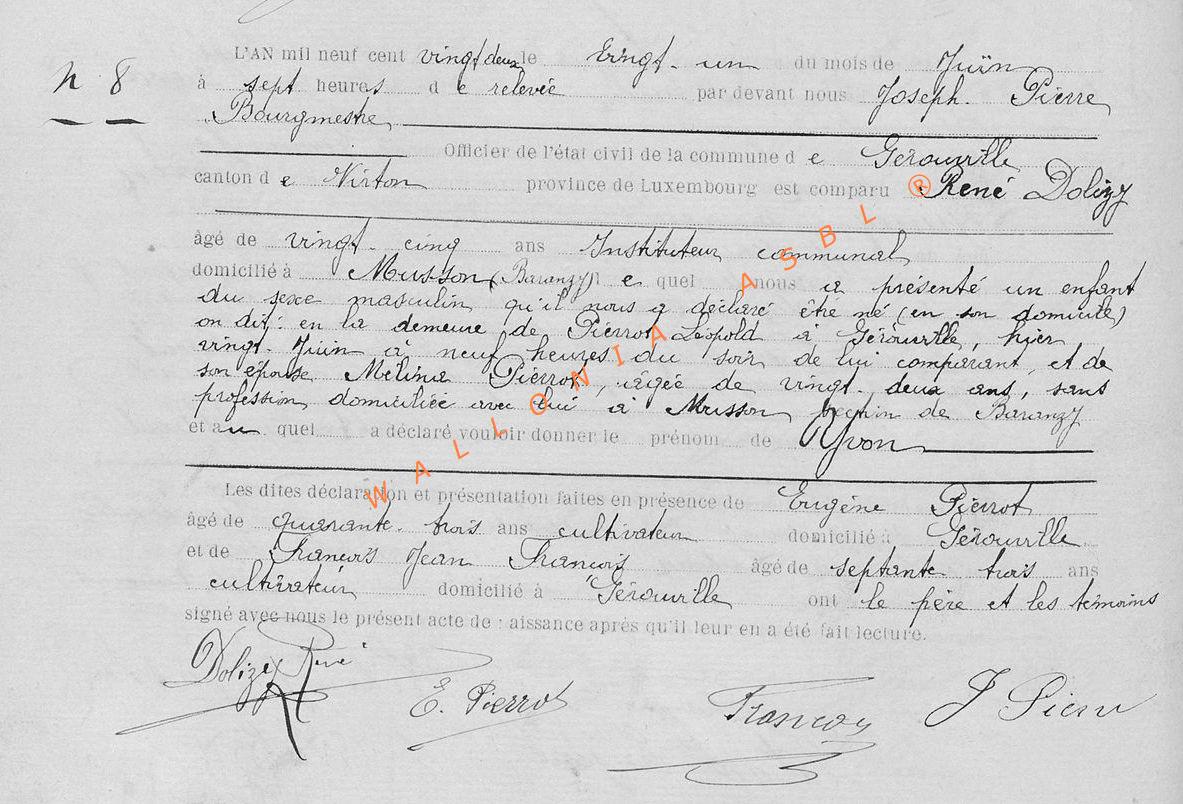 L'AN mil neuf cent vingt deux le vingt-un du mois de Juin
n 8
à sept heures de relevée par devant nous Joseph. Pierre
Bourgmestre,
Officier de l'état civil de la commune de Gérouville
canton de Virton province de Luxembourg est comparu René Dolizy
âgé de vingt-cinq ans Instituteur communal
domicilié à Musson (Baranzy) lequel nous a présenté un enfant
du sexe masculin qu'il nous a déclaré être né (en son domicile)
on dit: en la demeure de Pierrot Léopold à Gérouville, hier
vingt-Juin à neuf heures du soir de lui comparant, et de
son épouse Mélina Pierrot, âgée de vingt-deux ans, sans
profession domiciliée avec lui à Musson, section de Baranzy
et auquel a déclaré vouloir donner le prénom de Yvon
Les dites déclaration et présentation faites en présence de Eugène Pierrot
âgé de quarante-trois ans cultivateur domicilié à Gérouville
et de François Jean François âgé de septante trois ans
cultivateur domicilié à Gérouville ont le père et les témoins
signé avec nous le présent acte de : aissance après qu'il leur en a été fait lecture.
Dolizy René
E. Pierrot
François
J Pierre
WALLONIA ASBL ®